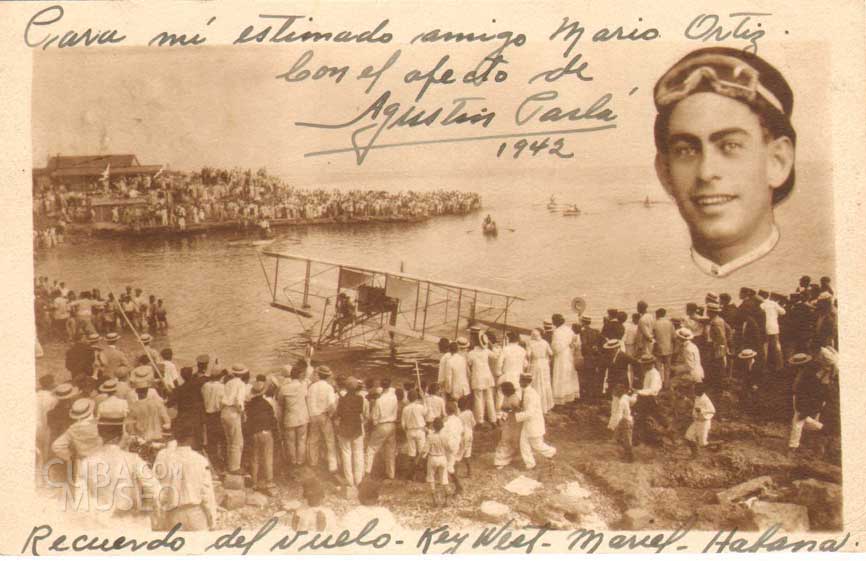 Para mi estimado amigo Mario Ortiz.
Con el afecto de
Agustin Parlá
1942
CUBA.com
MUSEO
Recuerdo del vuelo - Key West - Mariel - Habana.